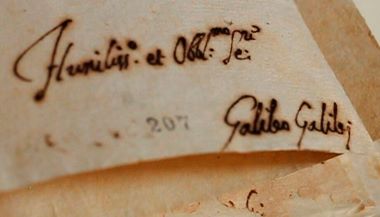 Humiliss.º et Obbl.mo Se.re
207
Galileo Galilei